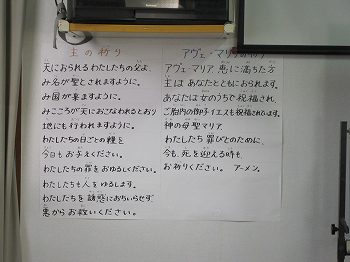 主の祈り
天におられるわたしたちの父よ、
み名が聖とされますように。
み国が来ますように。
みこころが天におこなわれるとおり
地にも行われますように。
わたしたちの日ごとの糧を
今日もお与えください。
わたしたちの罪をおゆるしください。
わたしたちも人をゆるします。
わたしたちを誘惑におちいらせず、
悪からお救いください。
アヴェ・マリアの祈り
アヴェ・マリア、恵みに満ちた方、
主はあなたとともにおられます。
あなたは女のうちで祝福され、
ご胎内の御子イエスも祝福されています。
神の母聖マリア、
わたしたち罪びとのために、
今も、死を迎える時も、
お祈りください。 アーメン。